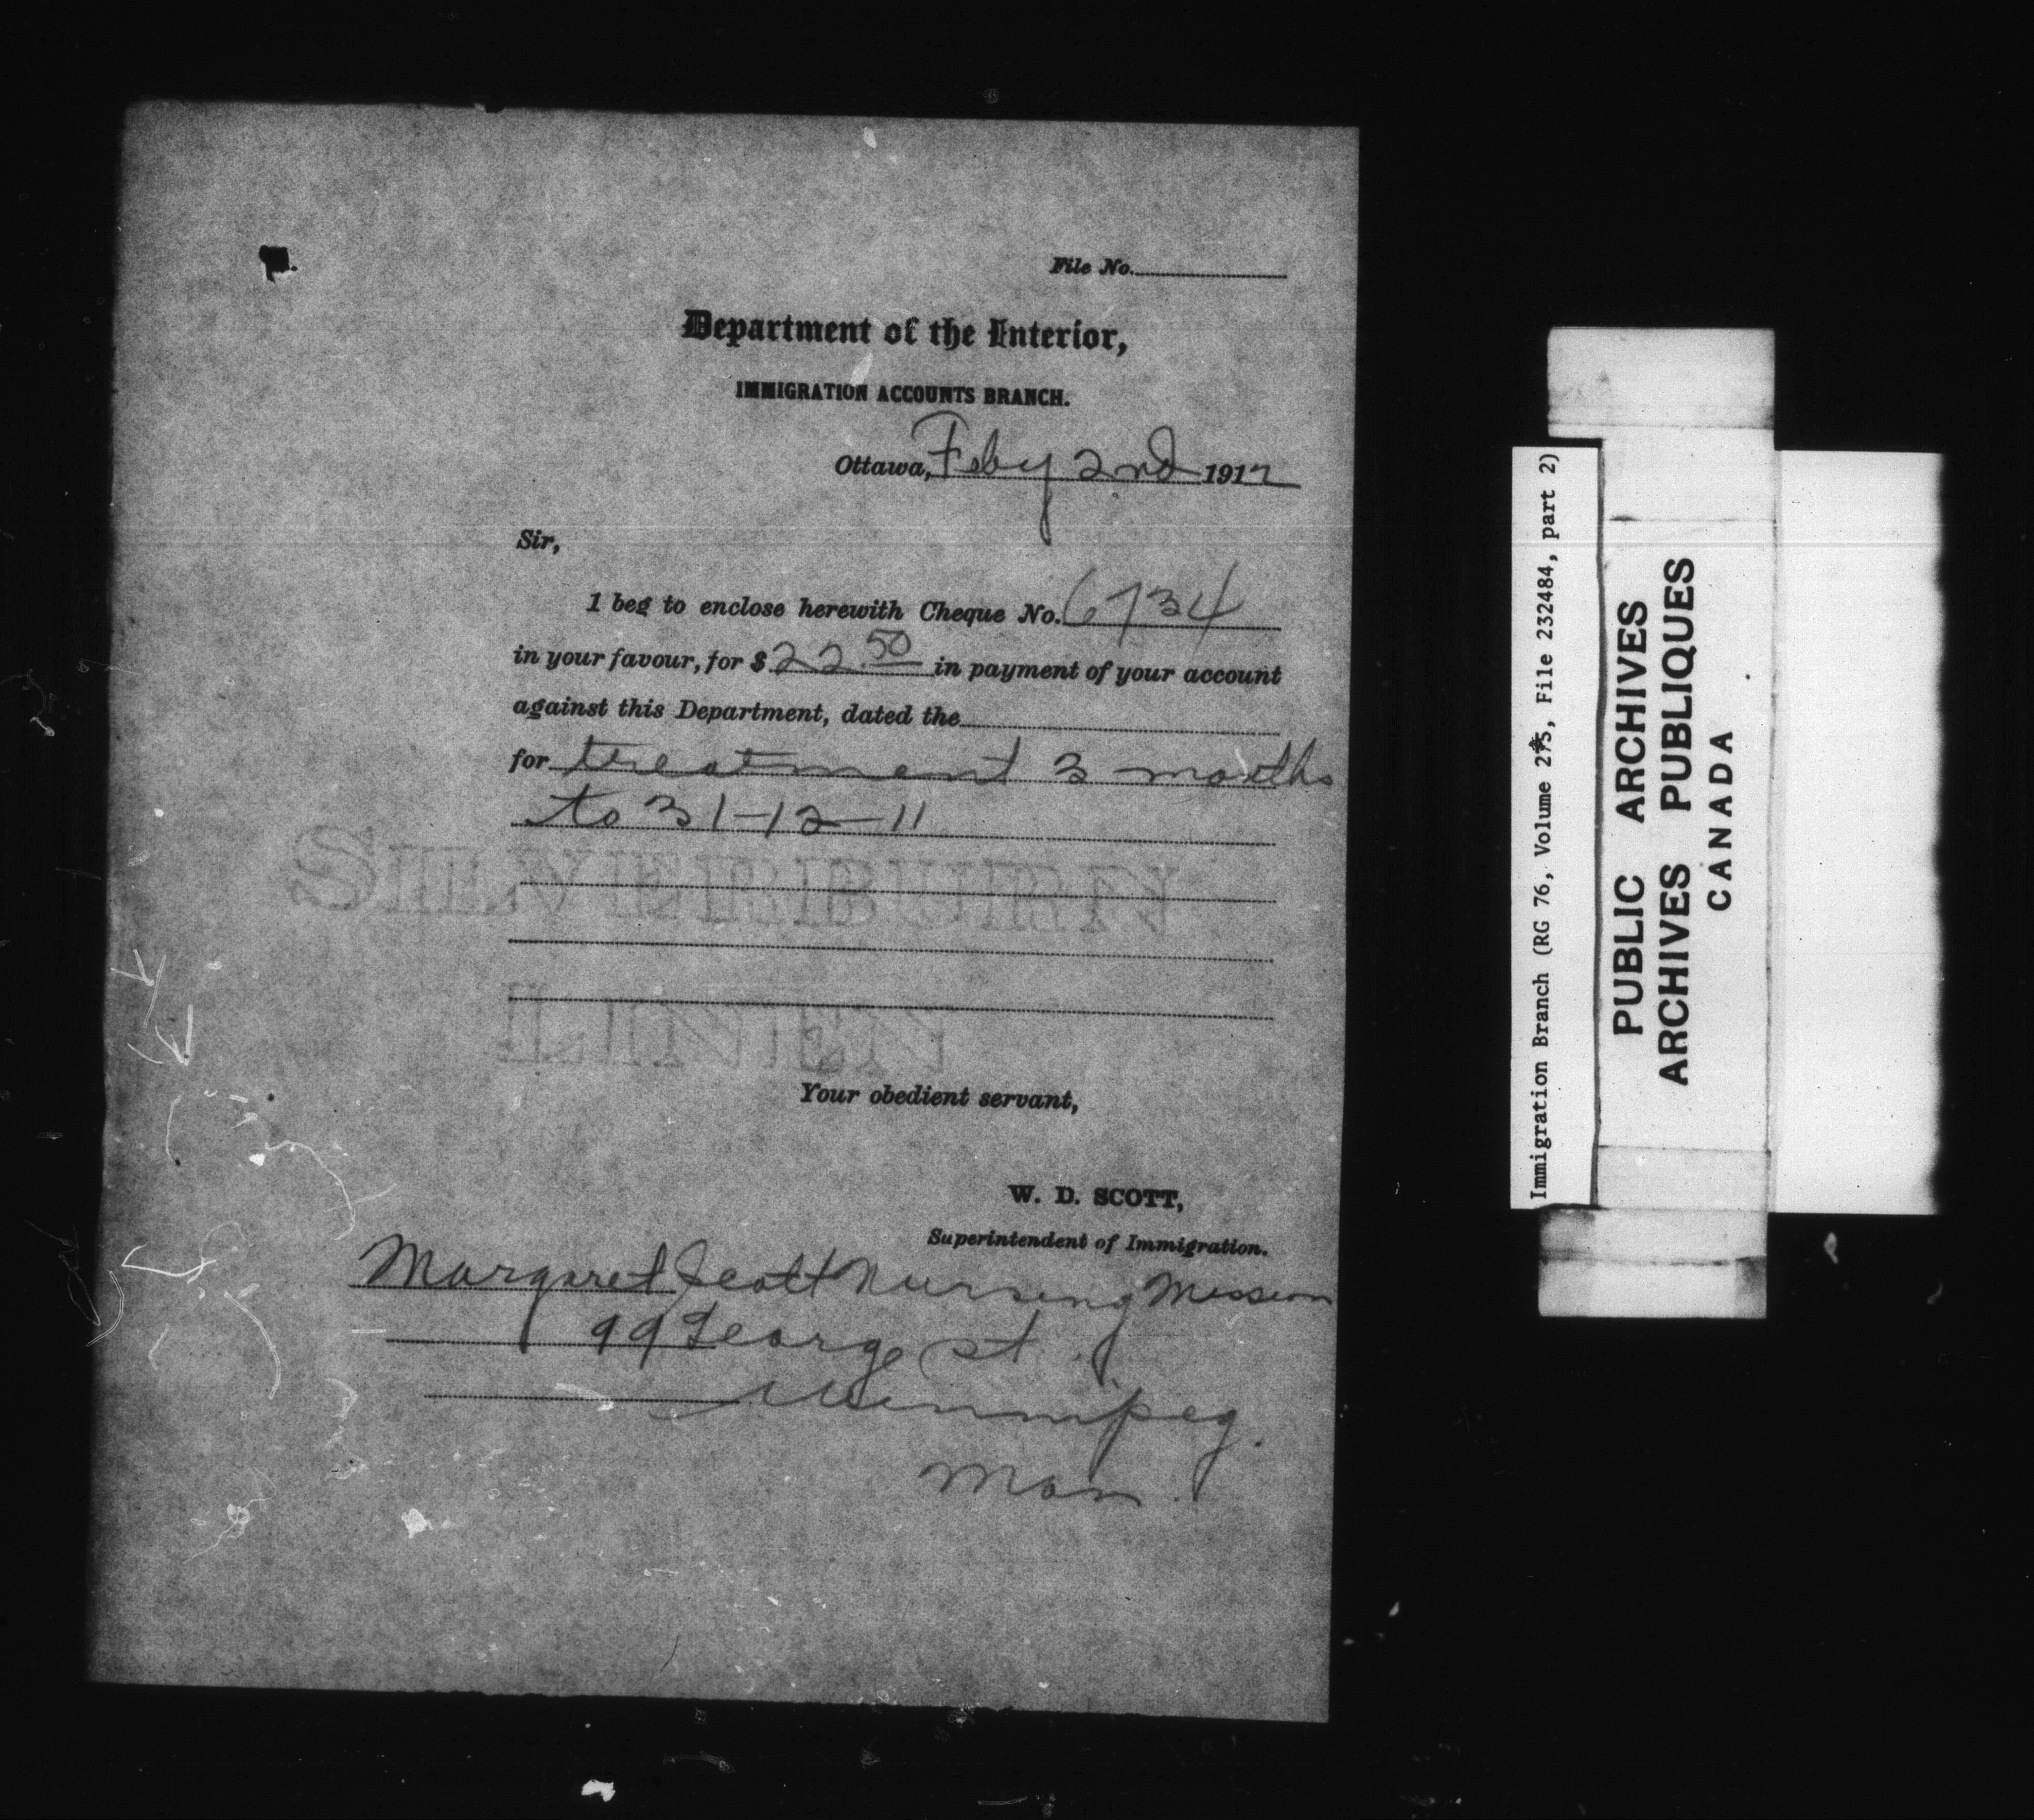 File No.
Department of the Interior,
IMMIGRATION ACCOUNTS BRANCH.
Ottawa, Feby 2nd 1912
Sir,
I beg to enclose herewith Cheque No. 6734
in your favour, for $ 22.50 in payment of your account
against this Department, dated the
for treatment 3 months
to 31-12-11
SILVERBURN
LINEN
Your obedient servant,
W. D. SCOTT,
Superintendent of Immigration.
Margaret Scott Nursing Mission
99 George St.
Winnipeg.
Man.
Immigration Branch (RG 76, Volume 275, File 232484, part 2)
PUBLIC ARCHIVES
ARCHIVES PUBLIQUES
CANADA